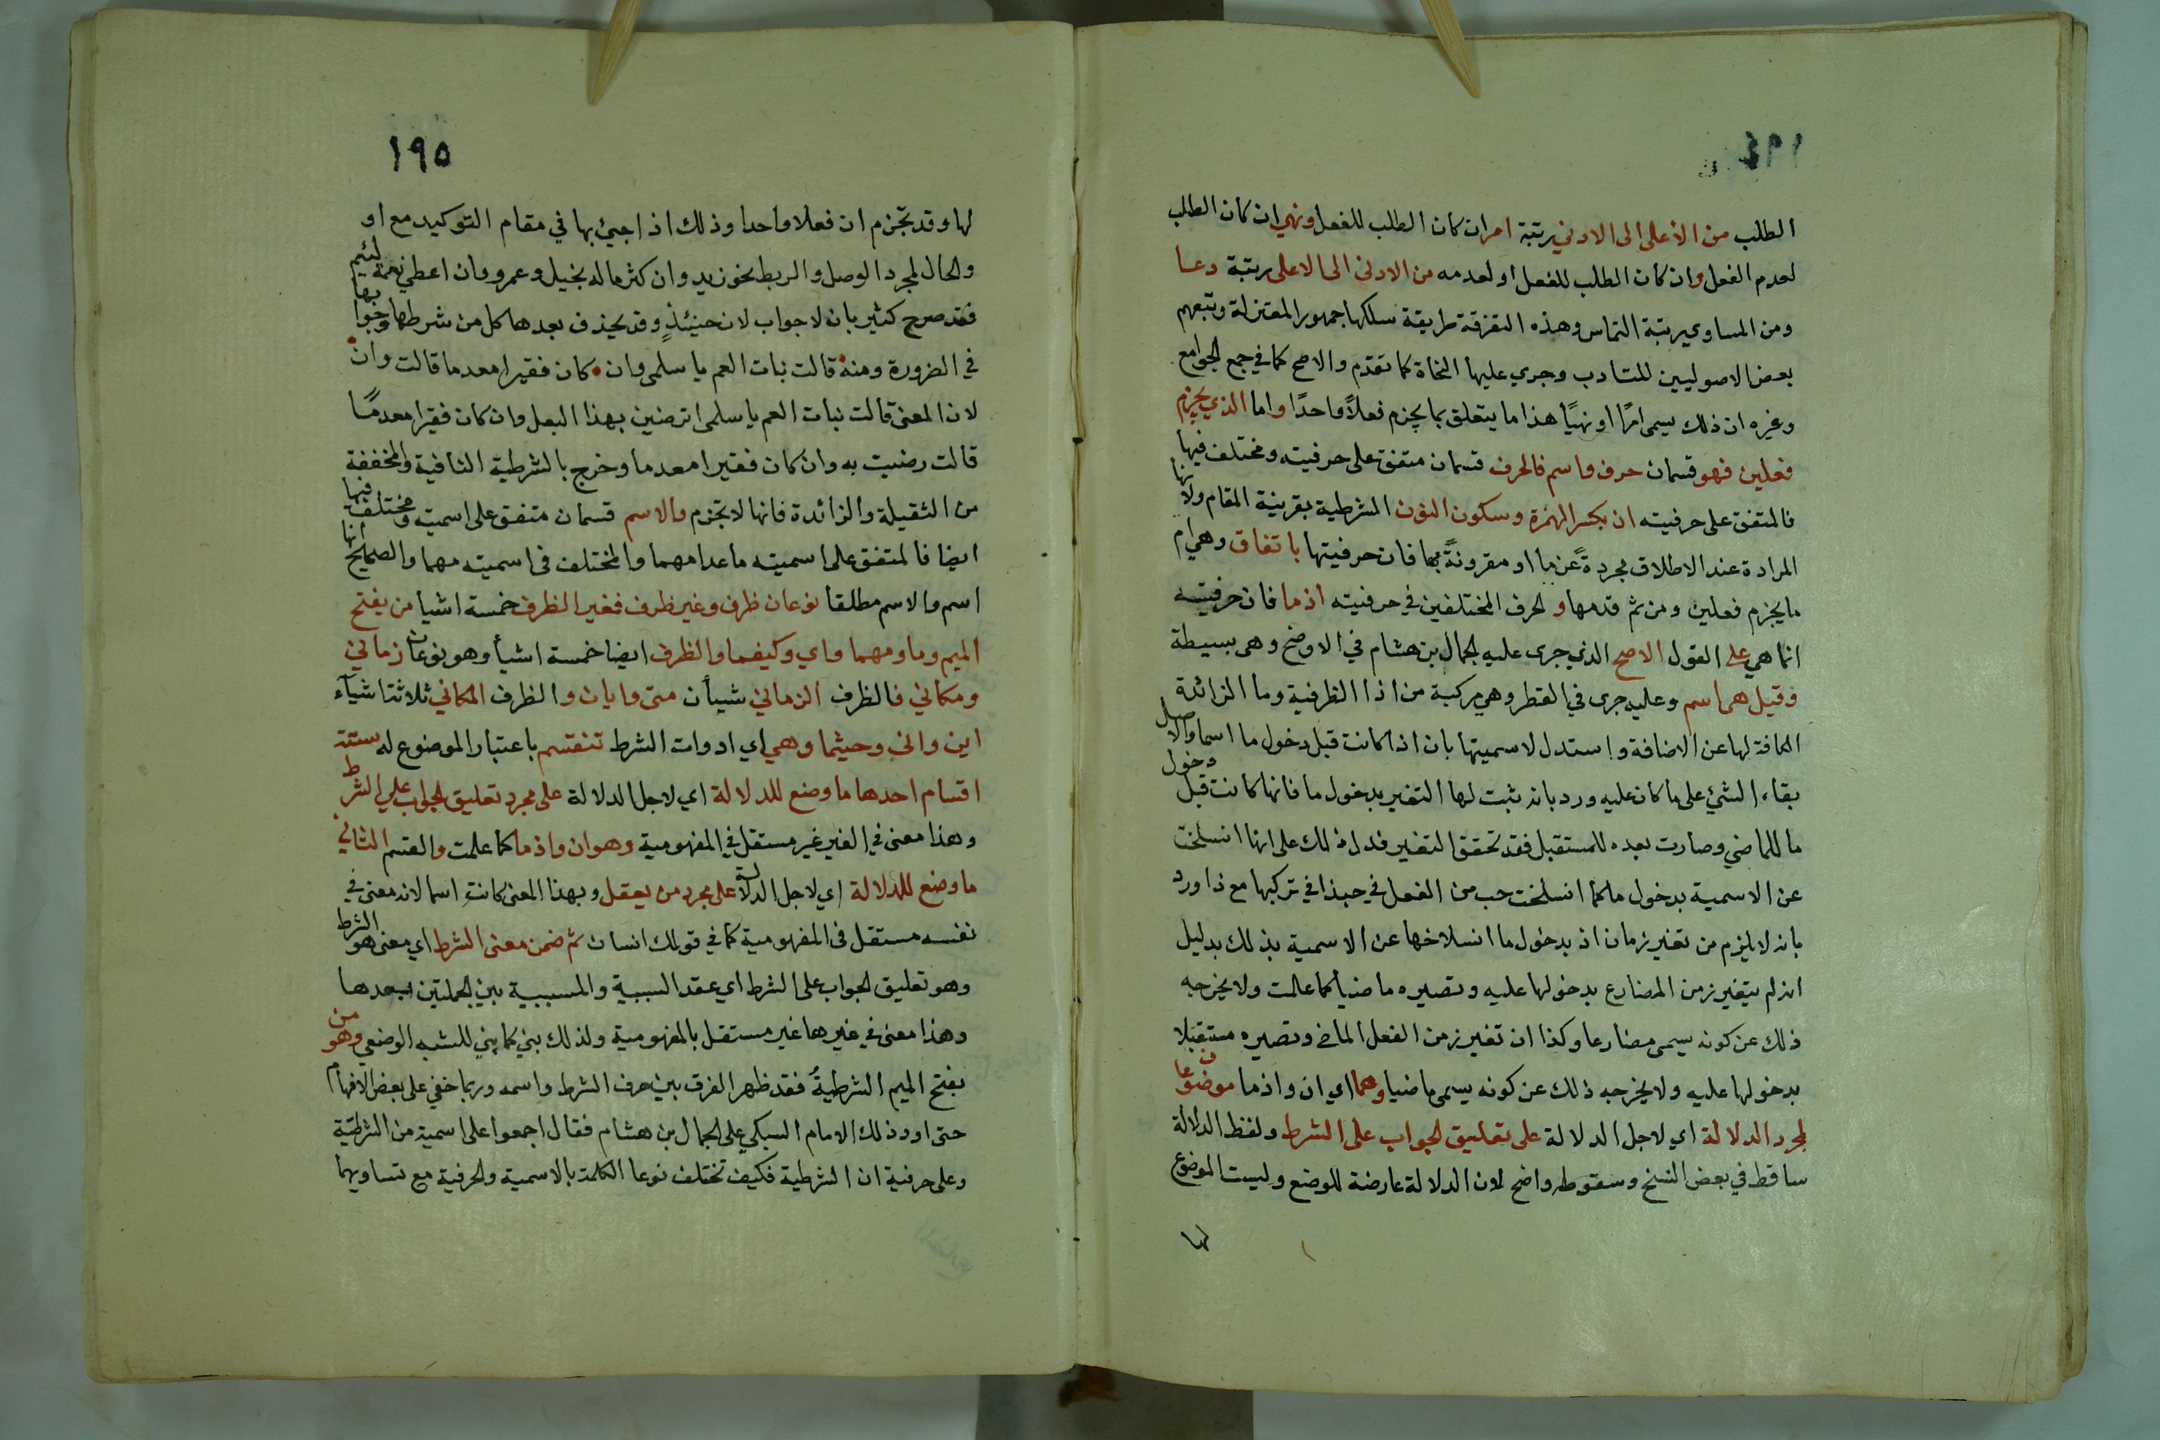 ١٩٤
الطلب من الأعلى الى الادنى رتبة امر ان كان الطلب للفعل ونهي ان كان الطلب
لعدم الفعل وان كان الطلب للفعل او لعدمه من الادنى الى الاعلى رتبة دعا
ومن المساوي رتبة التماس وهذه التفرقة طريقة سلكها جمهور المعتزلة وتبعهم
بعض الاصوليين للتادب وجرى عليها النحاة كما تقدم والاصح كما في جمع الجوامع
وغيره ان ذلك يسمى امرًا او نهيًا هذا ما يتعلق بما يجزم فعلاً واحدًا واما الذي يجزم
فعلين فهو قسمان حرف واسم فالحرف قسمان متفق على حرفيته ومختلف فيها
فالمتفق على حرفيته ان بكسر الهمزة وسكون النون الشرطية بقرينة المقام ولانها
المرادة عند الاطلاق مجردةً عن ما او مقرونةً بها فان حرفيتها باتفاق وهي ام
ما يجزم فعلين ومن ثم قدمها والحرف المختلفين في حرفيته اذما فان حرفيته
انما هي على القول الاصح الذي جرى عليه الجمال بن هشام في الاوضح وهى بسيطة
وقيل هى اسم وعليه جرى في القطر وهي مركبة من اذا الظرفية وما الزائدة
الكافة لها عن الاضافة واستدل لاسميتها بان اذ كانت قبل دخول ما اسما والاصل
بقاء الشئ على ما كان عليه ورد بانه ثبت لها التغير بدخول ما فانها كانت قبل دخول
ما للماضي وصارت بعده للمستقبل فقد تحقق التغير فدل ذلك على انها انسلخت
عن الاسمية بدخول ما كما انسلخت حب من الفعل في حبذا في تركبها مع ذا ورد
بانه لا يلزم من تغير زمان اذ بدخول ما انسلاخها عن الاسمية بذلك بدليل
انه لم يتغير زمن المضارع بدخولها عليه وتصيره ماضيا كما علمت ولا يخرجه
ذلك عن كونه يسمى مضارعا وكذا ان تغير زمن الفعل الماضى وتصيره مستقبلا
بدخولها عليه ولا يخرجه ذلك عن كونه يسمى ماضيا وهما اي ان واذما موضوعان
لمجرد الدلالة اي لاجل الدلالة على تعليق الجواب على الشرط ولفظ الدلالة
ساقط في بعض النسخ وسقوطه واضح لان الدلالة عارضة للوضع وليست الموضوع
لها
١٩٥
لها وقد تجزم ان فعلا واحدا وذلك اذ اجيئ بها في مقام التوكيد مع او
والحال لمجرد الوصل والربط نحو زيد وان كثر ماله بخيل وعمرو وان اعطي نعمة لئيم
فقد صرح كثير بان لا جواب لان حينئذٍ وقد يحذف بعدها كل من شرطها وجوابها
في الضرورة ومنه قالت بنات العم يا سلمى وان كان فقيرا معدما قالت وان
لان المعنى قالت بنات العم يا سلمى اترضين بهذا البعل وان كان فقيرا معدمًا
قالت رضيت به وان كان فقيرا معدما وخرج بالشرطية النافية والمخففة
من الثقيلة والزائدة فانها لا تجزم والاسم قسمان متفق على اسميته ومختلف فيها
ايضا فالمتفق على اسميته ماعدا مهما والمختلف فى اسميته مهما والصحيح انها
اسم والاسم مطلقا نوعان ظرف وغير ظرف فغير الظرف خمسة اشيا من بفتح
الميم وما ومهما واي وكيفما والظرف ايضا خمسة اشيأ وهو نوعان زماني
ومكاني فالظرف الزماني شيأن متى وايان والظرف المكاني ثلاثة اشيآء
اين وانى وحيثما وهي اي ادوات الشرط تنقسم باعتبار الموضوع له ستة
اقسام احدها ما وضع للدلالة اي لاجل الدلالة على مجرد تعليق الجواب على الشرط
وهذا معنى في الغير غير مستقل في المفهومية وهو ان واذما كما علمت والقسم الثاني
ما وضع للدلالة اي لاجل الدلالة على مجرد من يعقل وبهذا المعنى كانت اسما لانه معنى في
نفسه مستقل فى المفهومية كما في قولك انسان ثم ضمن معنى الشرط اي معنى هو الشرط
وهو تعليق الجواب على الشرط اي عقد السببية والمسببية بين الجملتين بعدها
وهذا معنى في غيرها غير مستقل بالمفهومية ولذلك بني كما بني للشبه الوضعي وهو من
بفتح الميم الشرطية فقد ظهر الفرق بين حرف الشرط واسمه وربما خفي على بعض الافهام
حتى اورد ذلك الامام السبكي على الجمال بن هشام فقال اجمعوا على اسمية من الشرطية
وعلى حرفية ان الشرطية فكيف تختلف نوعا الكلمة بالاسمية والحرفية مع تساويهما